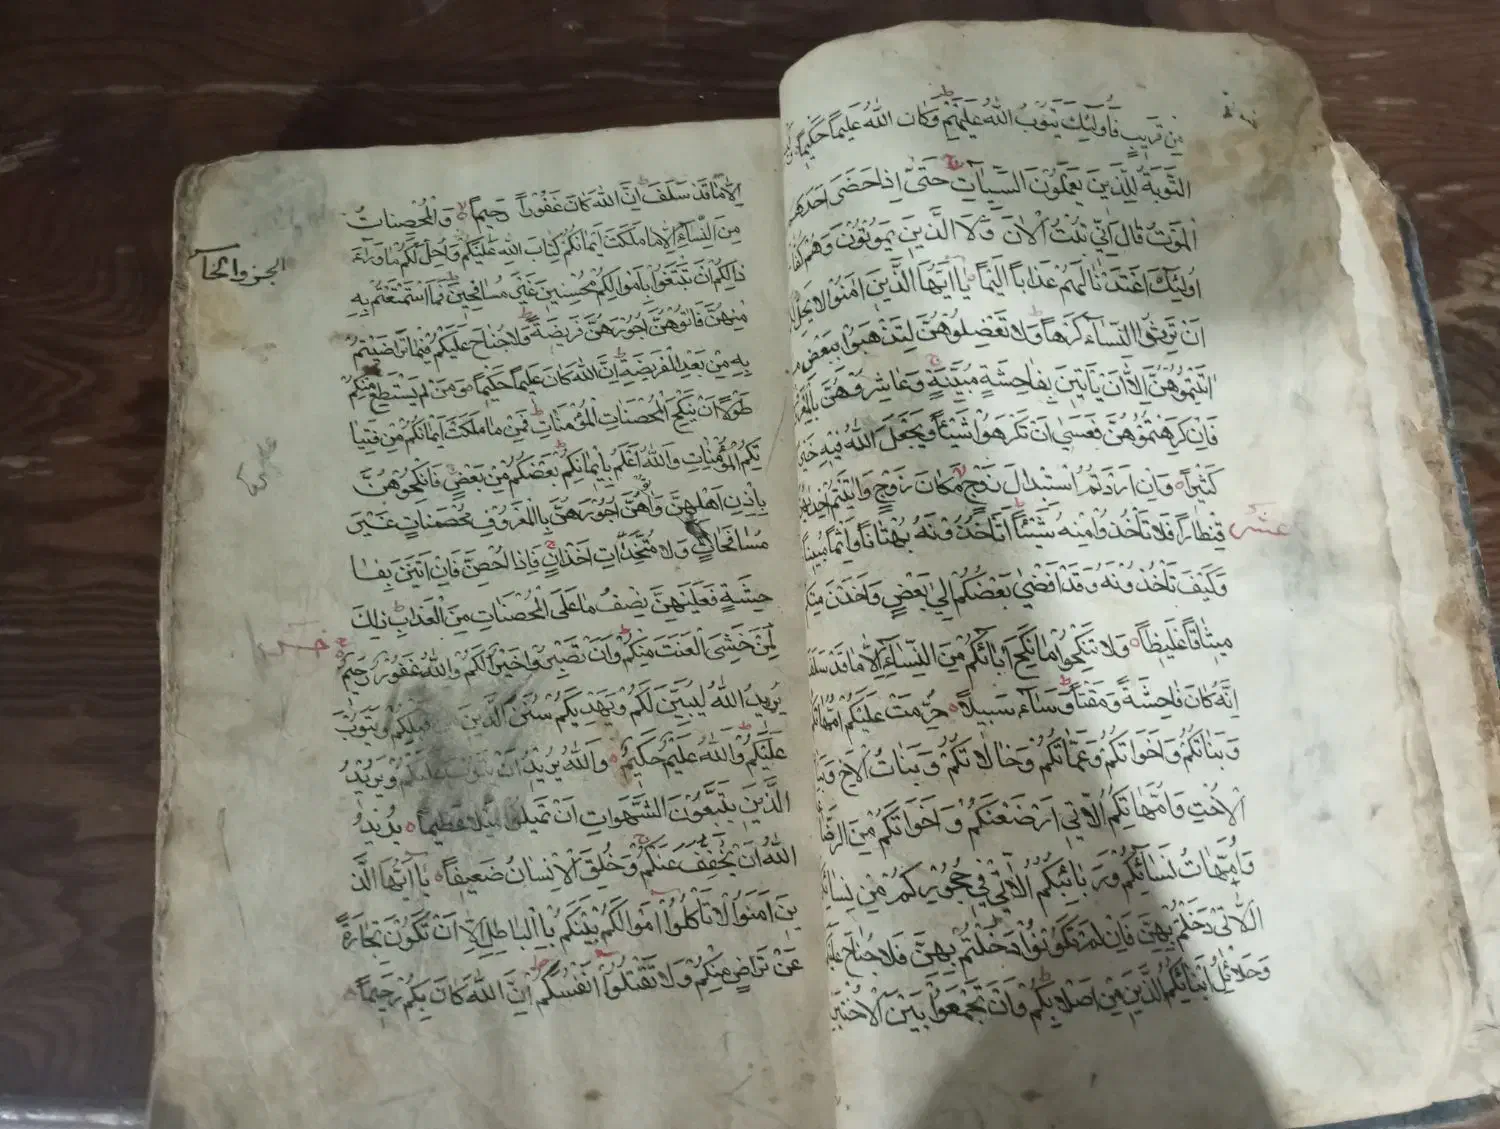 مِن قَرِيبٍ فَأُولَئِكَ يَتُوبُ اللهُ عَلَيْهِمْ وَكَانَ اللهُ عَلِيمًا حَكِيمًا
التَّوْبَةُ لِلَّذِينَ يَعْمَلُونَ السَّيِّئَاتِ حَتَّى إِذَا حَضَرَ أَحَدَهُمُ
الْمَوْتُ قَالَ إِنِّي تُبْتُ الْآنَ وَلَا الَّذِينَ يَمُوتُونَ وَهُمْ
أُولَئِكَ أَعْتَدْنَا لَهُمْ عَذَابًا أَلِيمًا يَا أَيُّهَا الَّذِينَ آمَنُوا لَا يَحِلُّ
أَنْ تَرِثُوا النِّسَاءَ كَرْهًا وَلَا تَعْضُلُوهُنَّ لِتَذْهَبُوا بِبَعْضِ
آتَيْتُمُوهُنَّ إِلَّا أَنْ يَأْتِينَ بِفَاحِشَةٍ مُبَيِّنَةٍ وَعَاشِرُوهُنَّ
فَإِنْ كَرِهْتُمُوهُنَّ فَعَسَى أَنْ تَكْرَهُوا شَيْئًا وَيَجْعَلَ اللهُ فِيهِ
كَثِيرًا وَإِنْ أَرَدْتُمُ اسْتِبْدَالَ زَوْجٍ مَكَانَ زَوْجٍ وَآتَيْتُمْ
قِنْطَارًا فَلَا تَأْخُذُوا مِنْهُ شَيْئًا أَتَأْخُذُونَهُ بُهْتَانًا وَإِثْمًا مُبِينًا
عشر
وَكَيْفَ تَأْخُذُونَهُ وَقَدْ أَفْضَى بَعْضُكُمْ إِلَى بَعْضٍ وَأَخَذْنَ
مِيثَاقًا غَلِيظًا وَلَا تَنْكِحُوا مَا نَكَحَ آبَائُكُمْ مِنَ النِّسَاءِ إِلَّا مَا قَدْ سَلَفَ
إِنَّهُ كَانَ فَاحِشَةً وَمَقْتًا وَسَاءَ سَبِيلًا حُرِّمَتْ عَلَيْكُمْ
وَبَنَاتُكُمْ وَأَخَوَاتُكُمْ وَعَمَّاتُكُمْ وَخَالَاتُكُمْ وَبَنَاتُ الْأَخِ
الْأُخْتِ وَأُمَّهَاتُكُمُ اللَّاتِي أَرْضَعْنَكُمْ وَأَخَوَاتُكُمْ مِنَ
وَأُمَّهَاتُ نِسَائِكُمْ وَرَبَائِبُكُمُ اللَّاتِي فِي حُجُورِكُمْ مِنْ
اللَّاتِي دَخَلْتُمْ بِهِنَّ فَإِنْ لَمْ تَكُونُوا دَخَلْتُمْ بِهِنَّ فَلَا جُنَاحَ
وَحَلَائِلُ أَبْنَائِكُمُ الَّذِينَ مِنْ أَصْلَابِكُمْ وَأَنْ تَجْمَعُوا بَيْنَ الْأُخْتَيْنِ
إِلَّا مَا قَدْ سَلَفَ إِنَّ اللهَ كَانَ غَفُورًا رَحِيمًا وَالْمُحْصَنَاتُ
مِنَ النِّسَاءِ إِلَّا مَا مَلَكَتْ أَيْمَانُكُمْ كِتَابَ اللهِ عَلَيْكُمْ وَأُحِلَّ لَكُمْ مَا وَرَاءَ
الجزو الخا
ذَلِكُمْ أَنْ تَبْتَغُوا بِأَمْوَالِكُمْ مُحْصِنِينَ غَيْرَ مُسَافِحِينَ فَمَا اسْتَمْتَعْتُمْ بِهِ
مِنْهُنَّ فَآتُوهُنَّ أُجُورَهُنَّ فَرِيضَةً وَلَا جُنَاحَ عَلَيْكُمْ فِيمَا تَرَاضَيْتُمْ
بِهِ مِنْ بَعْدِ الْفَرِيضَةِ إِنَّ اللهَ كَانَ عَلِيمًا حَكِيمًا وَمَنْ لَمْ يَسْتَطِعْ مِنْكُمْ
طَوْلًا أَنْ يَنْكِحَ الْمُحْصَنَاتِ الْمُؤْمِنَاتِ فَمِنْ مَا مَلَكَتْ أَيْمَانُكُمْ مِنْ فَتَيَا
تِكُمُ الْمُؤْمِنَاتِ وَاللهُ أَعْلَمُ بِإِيمَانِكُمْ بَعْضُكُمْ مِنْ بَعْضٍ فَانْكِحُوهُنَّ
بِإِذْنِ أَهْلِهِنَّ وَآتُوهُنَّ أُجُورَهُنَّ بِالْمَعْرُوفِ مُحْصَنَاتٍ غَيْرَ
مُسَافِحَاتٍ وَلَا مُتَّخِذَاتِ أَخْدَانٍ فَإِذَا أُحْصِنَّ فَإِنْ أَتَيْنَ بِفَا
حِشَةٍ فَعَلَيْهِنَّ نِصْفُ مَا عَلَى الْمُحْصَنَاتِ مِنَ الْعَذَابِ ذَلِكَ
لِمَنْ خَشِيَ الْعَنَتَ مِنْكُمْ وَأَنْ تَصْبِرُوا خَيْرٌ لَكُمْ وَاللهُ غَفُورٌ رَحِيمٌ
خمس
يُرِيدُ اللهُ لِيُبَيِّنَ لَكُمْ وَيَهْدِيَكُمْ سُنَنَ الَّذِينَ قَبْلِكُمْ وَيَتُوبَ
عَلَيْكُمْ وَاللهُ عَلِيمٌ حَكِيمٌ وَاللهُ يُرِيدُ أَنْ يَتُوبَ عَلَيْكُمْ وَيُرِيدُ
الَّذِينَ يَتَّبِعُونَ الشَّهَوَاتِ أَنْ تَمِيلُوا مَيْلًا عَظِيمًا يُرِيدُ
اللهُ أَنْ يُخَفِّفَ عَنْكُمْ وَخُلِقَ الْإِنْسَانُ ضَعِيفًا يَا أَيُّهَا الَّذِ
ينَ آمَنُوا لَا تَأْكُلُوا أَمْوَالَكُمْ بَيْنَكُمْ بِالْبَاطِلِ إِلَّا أَنْ تَكُونَ تِجَارَةً
عَنْ تَرَاضٍ مِنْكُمْ وَلَا تَقْتُلُوا أَنْفُسَكُمْ إِنَّ اللهَ كَانَ بِكُمْ رَحِيمًا